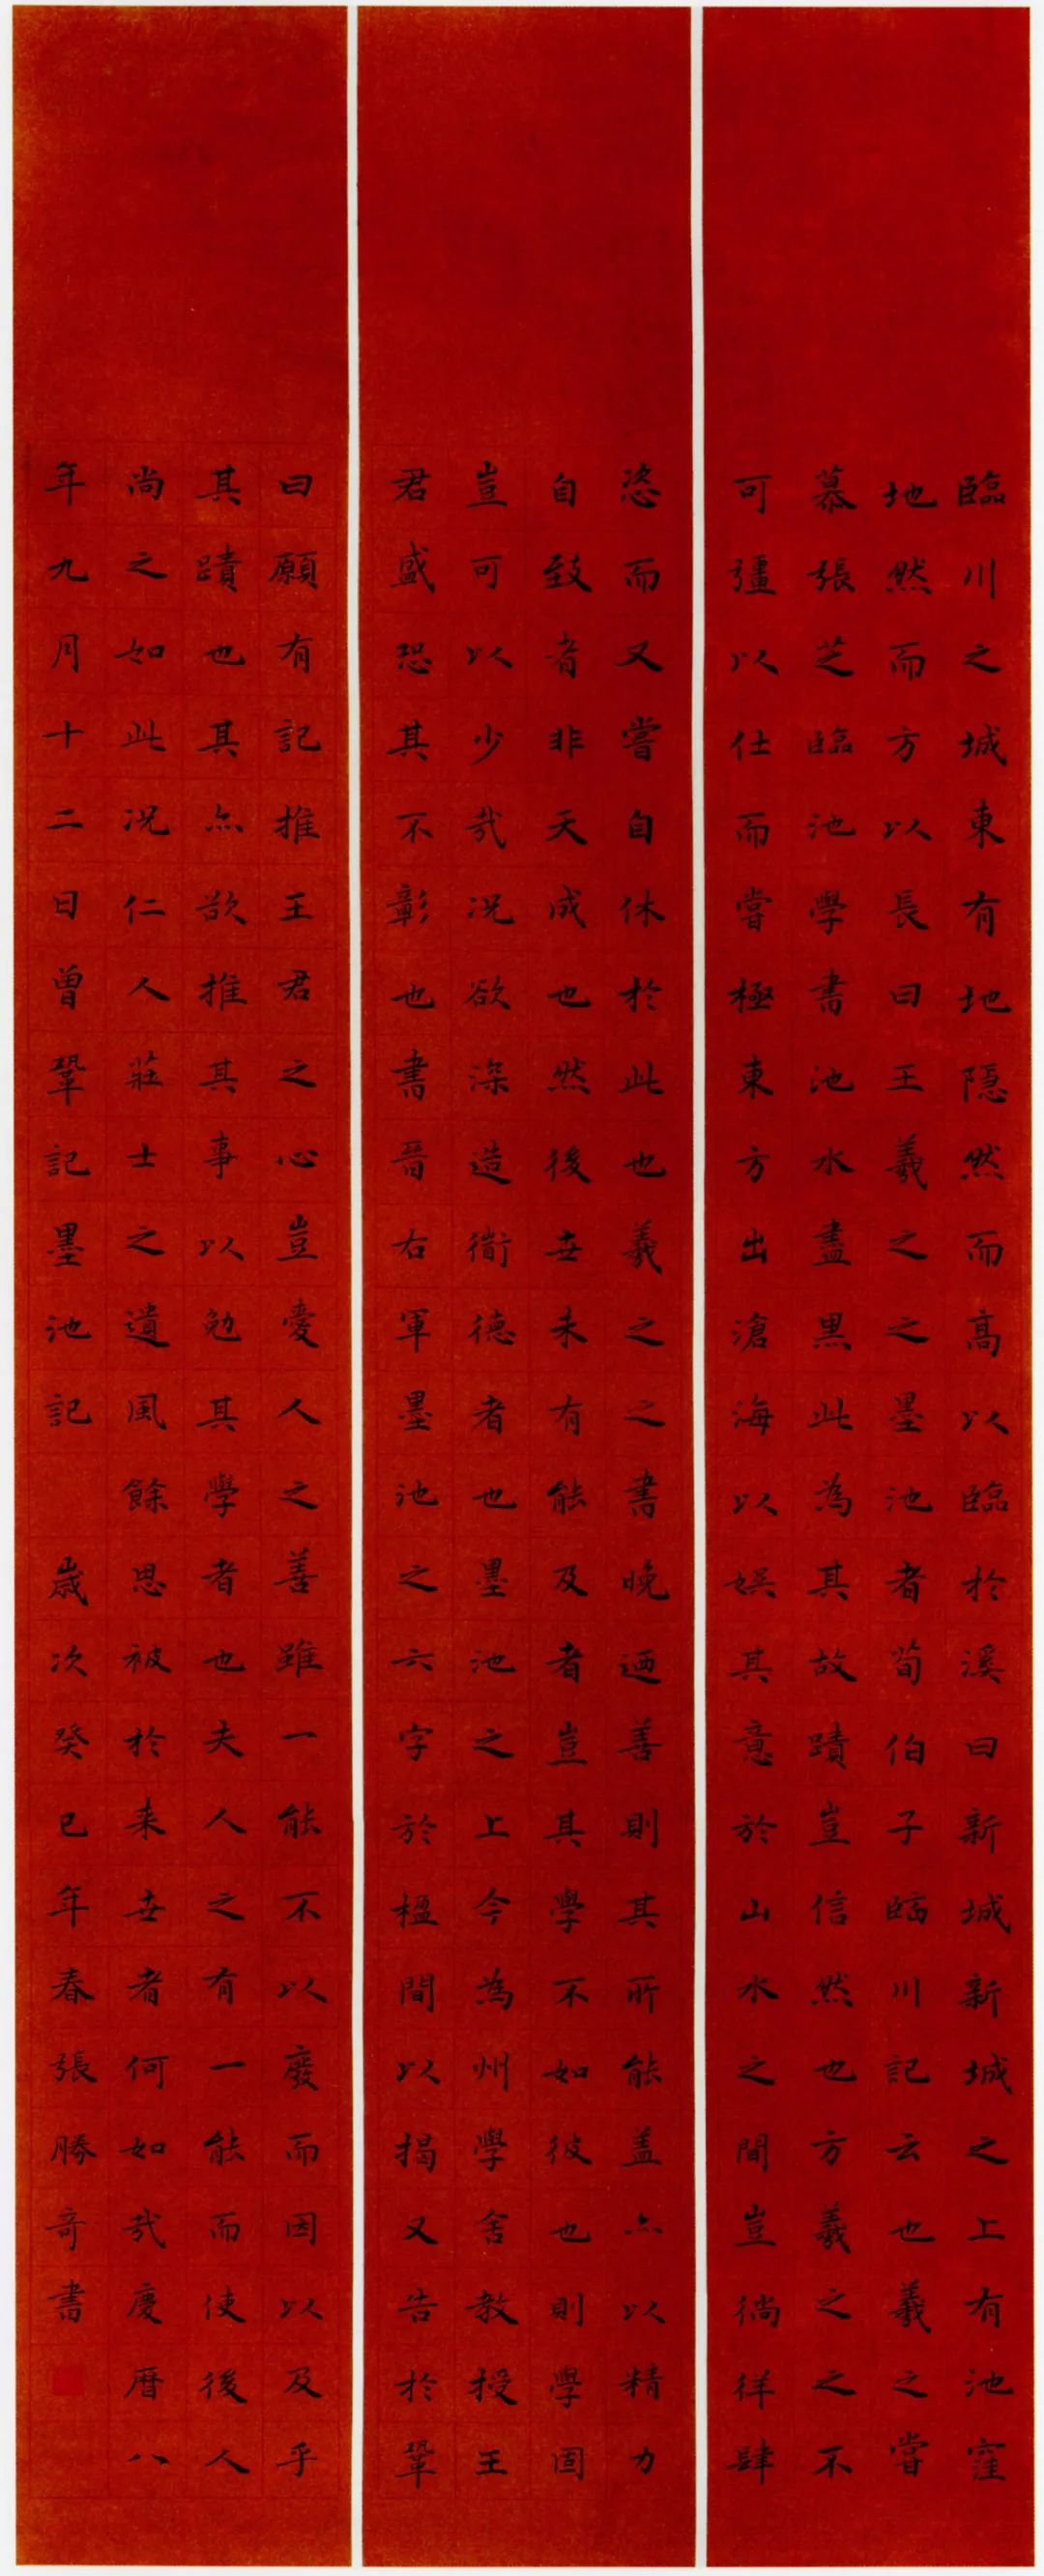 臨川之城東有地隱然而高以臨於溪曰新城新城之上有池窪
地然而方以長曰王羲之之墨池者荀伯子臨川記云也羲之嘗
慕張芝臨池學書池水盡黑此為其故蹟豈信然也方羲之之不
可彊以仕而嘗極東方出滄海以娛其意於山水之間豈徜徉肆
恣而又嘗自休於此也羲之之書晚迺善則其所能蓋亦以精力
自致者非天成也然後世未有能及者豈其學不如彼也則學固
豈可以少哉況欲深造衜德者也墨池之上今為州學舍教授王
君盛恐其不彰也書晉右軍墨池之六字於楹間以揭又告於鞏
曰願有記推王君之心豈愛人之善雖一能不以廢而因以及乎
其蹟也其亦欲推其事以勉其學者也夫人之有一能而使後人
尚之如此況仁人莊士之遺風餘思被於来世者何如哉慶曆八
年九月十二日曾鞏記墨池記 歲次癸巳年春張勝奇書